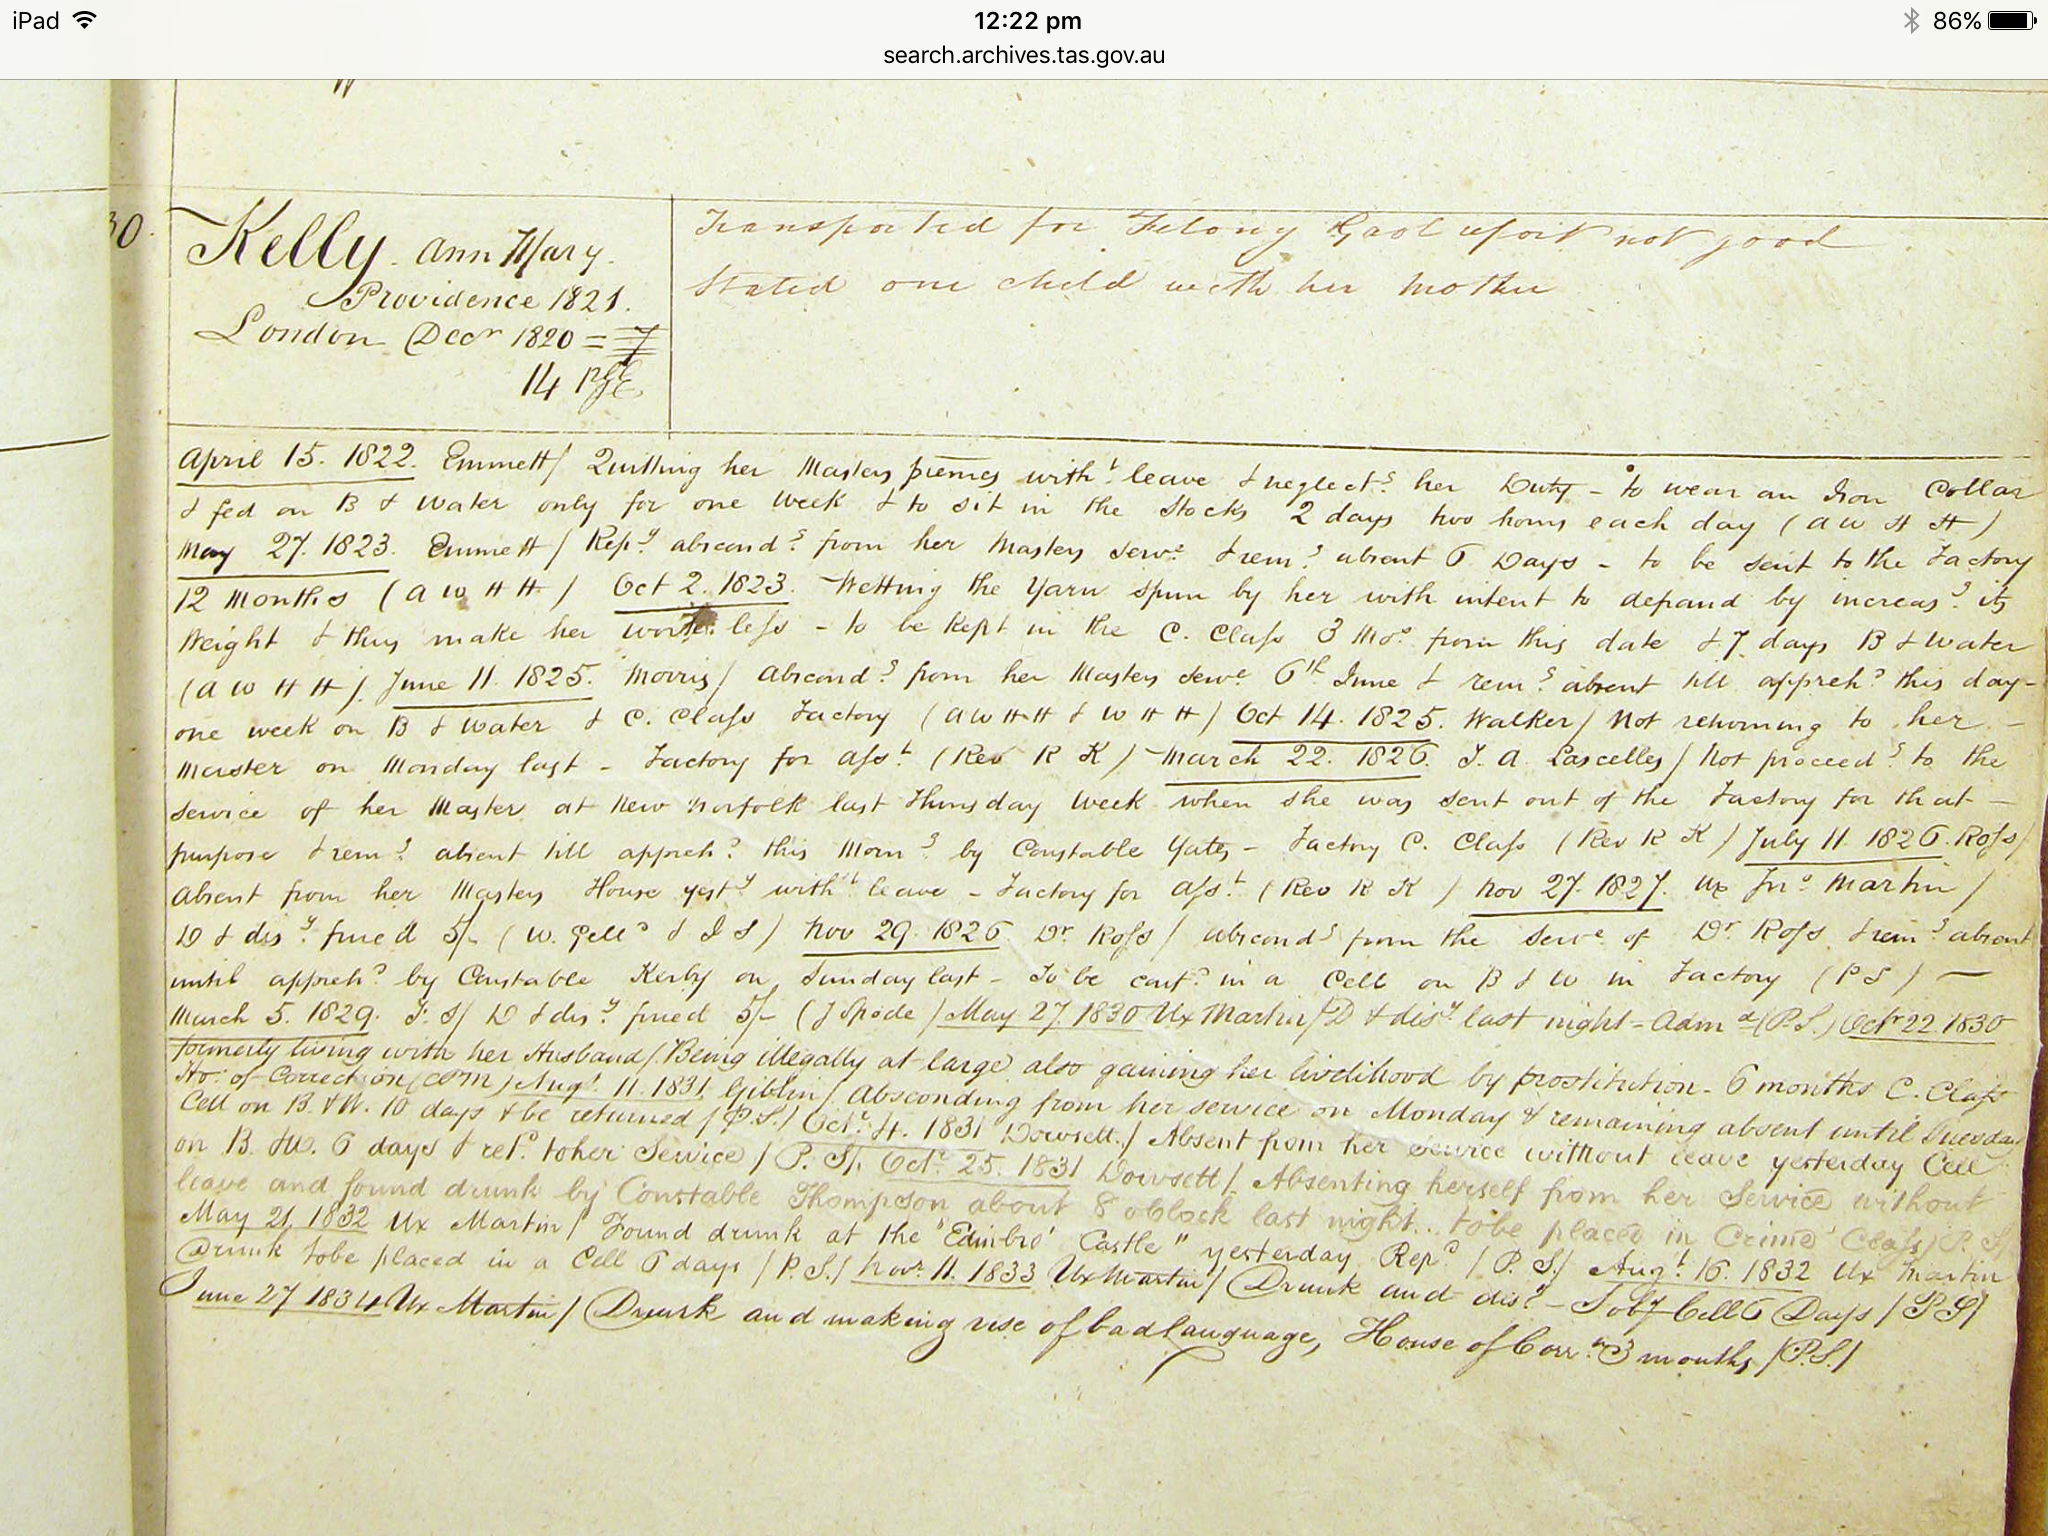 iPad
12:22 pm
86%
search.archives.tas.gov.au
30.
Kelly. Ann Mary.
Providence 1821.
London Decr 1820 = 7
14
Transported for Felony Gaol report not good
Stated one child with her Mother
April 15. 1822. Emmett/ Quitting her Masters premes witht leave & neglectg her Duty - to wear an Iron Collar
& fed on B & Water only for one week & to sit in the Stocks 2 days two hours each day (A W H H)
May 27. 1823. Emmett/ Repy abscondg from her Masters serve & remg absent 6 Days - to be sent to the Factory
12 Months (A W H H) Oct 2. 1823. Wetting the Yarn spun by her with intent to defraud by increasg its
Weight & thus make her worthless - to be Kept in the C. Class 3 Mos from this date & 7 days B & Water
(A W H H). June 11. 1825. Morris/ Abscondg from her Masters serve 6th June & remg absent till appreh'd this day -
one week on B & Water & C. Class Factory (A W H H & W H H) Oct 14. 1825. Walker/ Not returning to her -
Master on Monday last - Factory for asst (Rev R K) - March 22. 1826. T. A. Lascelles/ Not proceedg to the
service of her Master at New Norfolk last Thursday Week when she was sent out of the Factory for that -
purpose & remg absent till apprehd this Morng by Constable Yates - Factory C. Class (Rev R K) July 11. 1826. Ross/
Absent from her Masters House yesty witht leave - Factory for asst (Rev R K) Nov 27. 1827. Ux Jno Martin/
D & disy fined 5/- (W. Gell & J S) Nov 29. 1826. Dr Ross/ abscondg from the serve of Dr Ross & remg absent
until apprehd by Constable Kirby on Sunday last - To be confd in a Cell on B & W in Factory (P S) -
March 5. 1829. F. S/ D & disy fined 5/- (J Spode) May 27. 1830 Ux Martin/ D & disy last night - Admd (P.S.) Octr 22. 1830
formerly living with her Husband/ Being illegally at large also gaining her livelihood by prostitution - 6 months C. Class
Ho: of Correction (CPM) Augt 11. 1831 Giblin/ Absconding from her service on Monday & remaining absent until Tuesday
Cell on B. & W. 10 days & be returned (P.S.) Octr 4. 1831 Dowsett/ Absent from her service without leave yesterday Cell
on B. & W. 6 days & retd to her Service/ P. S/. Octr 25. 1831 Dowsett/ Absenting herself from her Service without
leave and found drunk by Constable Thompson about 8 oClock last night.. to be placed in Crime Class/ P. S/
May 21, 1832 Ux Martin/ Found drunk at the "Edinbro' Castle" yesterday Repd/ P. S/ Augt 16. 1832 Ux Martin
Drunk to be placed in a Cell 6 days/ P.S./ Novr 11. 1833 Ux Martin/ Drunk and disy - To by Cell 6 Days/ P S/
June 27 1834 Ux Martin/ Drunk and making use of bad language, House of Corrn 3 months/ P.S./